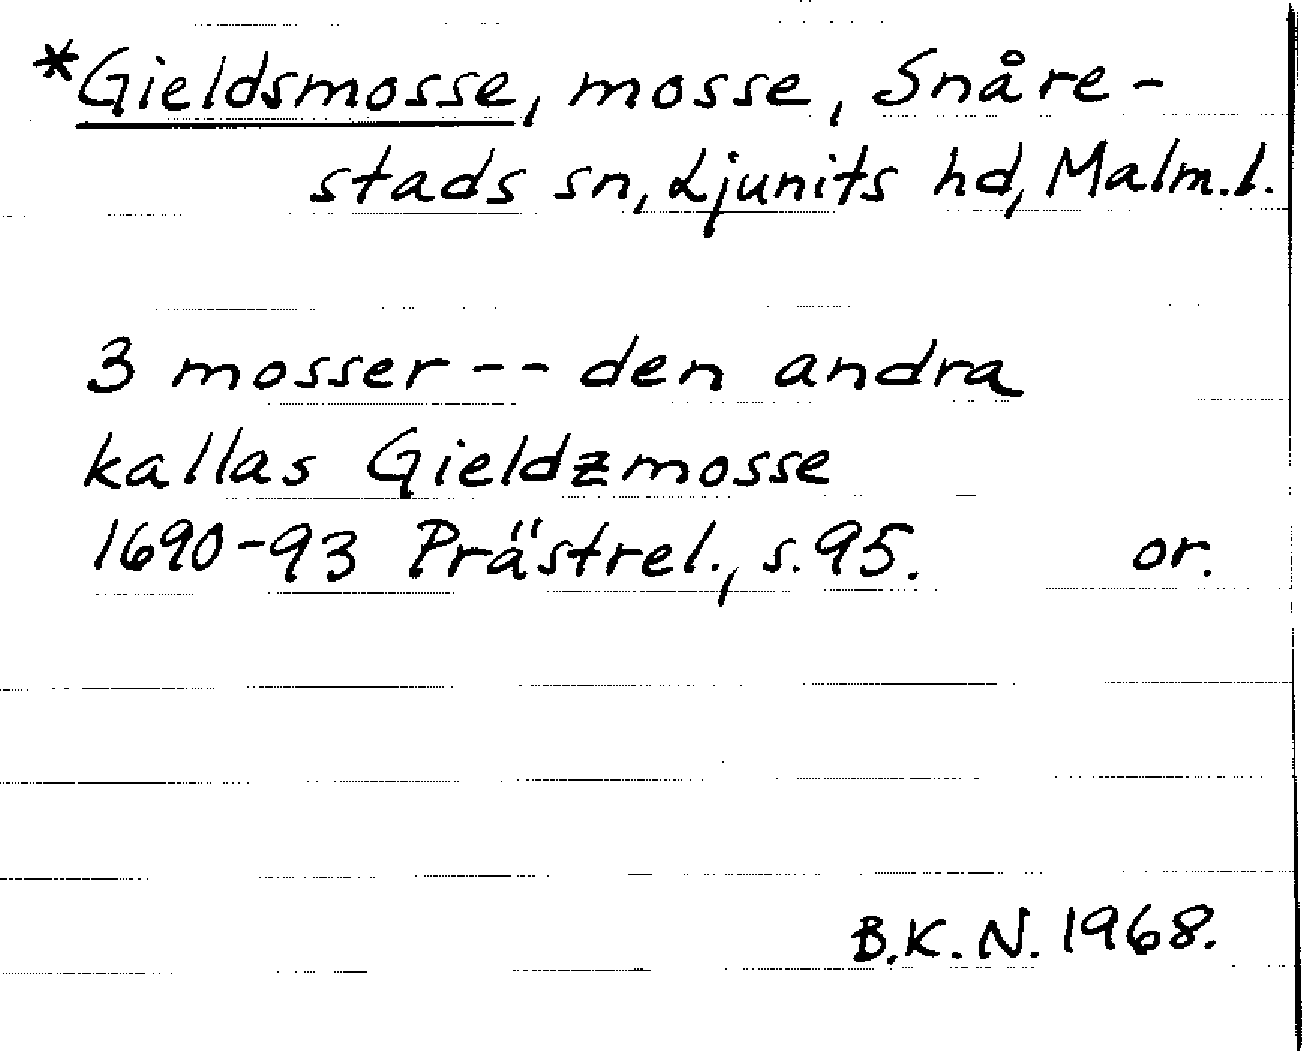 *Gieldsmosse, mosse, Snåre-
stads sn, Ljunits hd, Malm.l.
3 mosser -- den andra
kallas Gieldzmosse
1690-93 Prästrel., s. 95. or.
B.K.N. 1968.